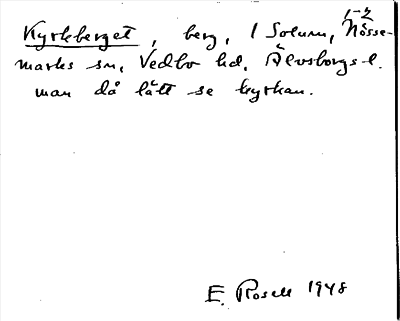 Kyrkberget, berg, 1 Solum, Nösse-
1-2
marks sn, Vedbo hd, Älvsborgs l.
man då lätt se kyrkan.
E. Rosell 1948